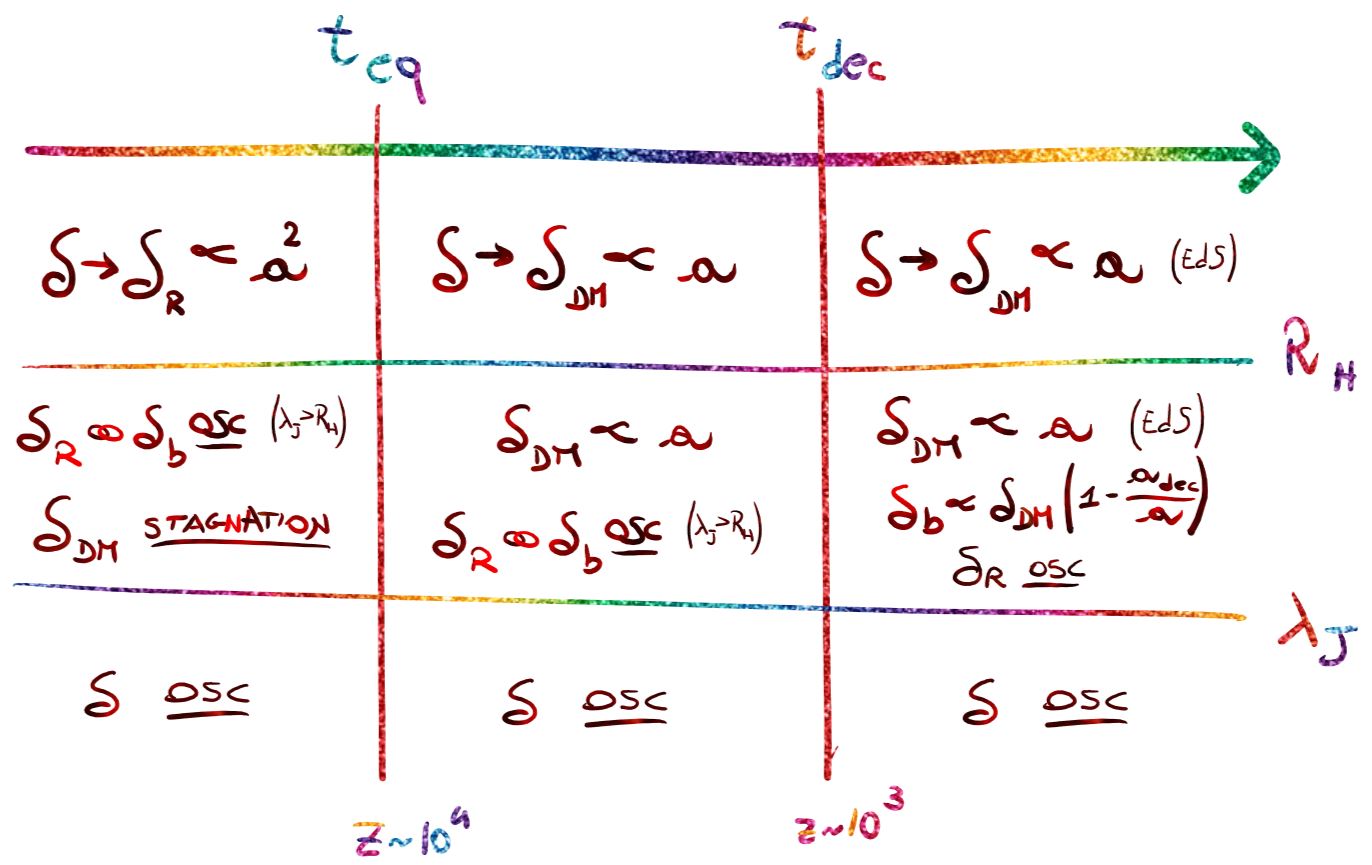 t_eq t_dec
δ→δ_R ∝ a² δ→δ_DM ∝ a δ→δ_DM ∝ a (EdS)
R_H
δ_R ∞ δ_b OSC (λ_J>R_H) δ_DM ∝ a δ_DM ∝ a (EdS)
δ_DM STAGNATION δ_R ∞ δ_b OSC (λ_J>R_H) δ_b ∝ δ_DM (1 - a_dec/a)
δ_R OSC
λ_J
δ OSC δ OSC δ OSC
z~10⁴ z~10³